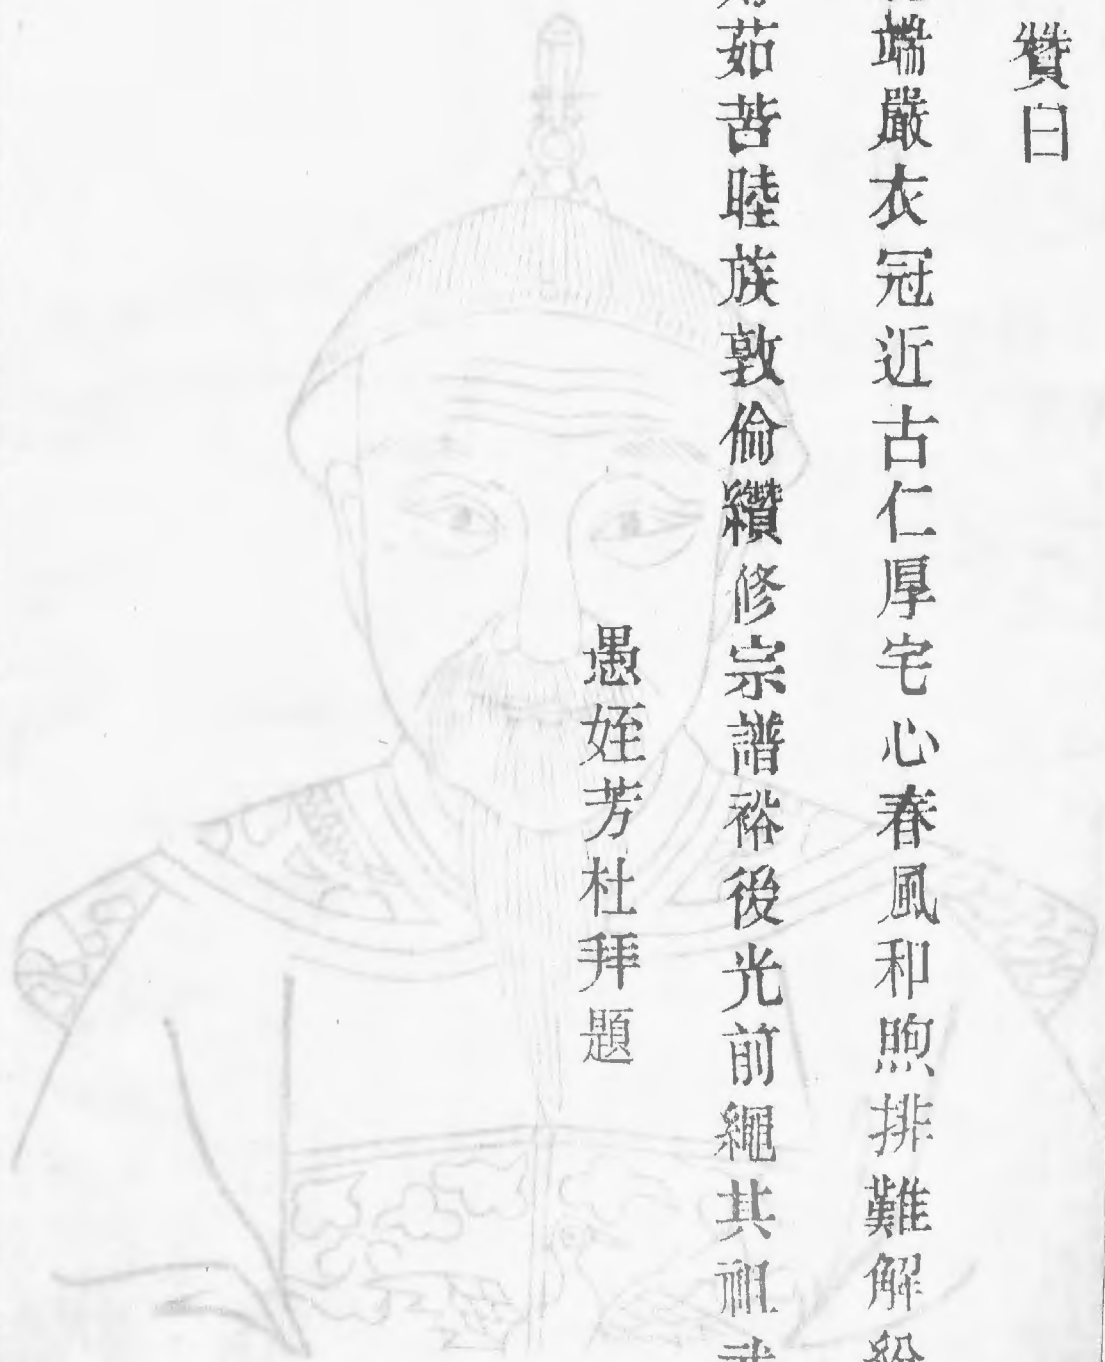 贊曰
端嚴衣冠近古仁厚宅心春風和煦排難解紛
茹苦睦族敦倫纘修宗譜裕後光前繩其祖武
愚姪芳杜拜題